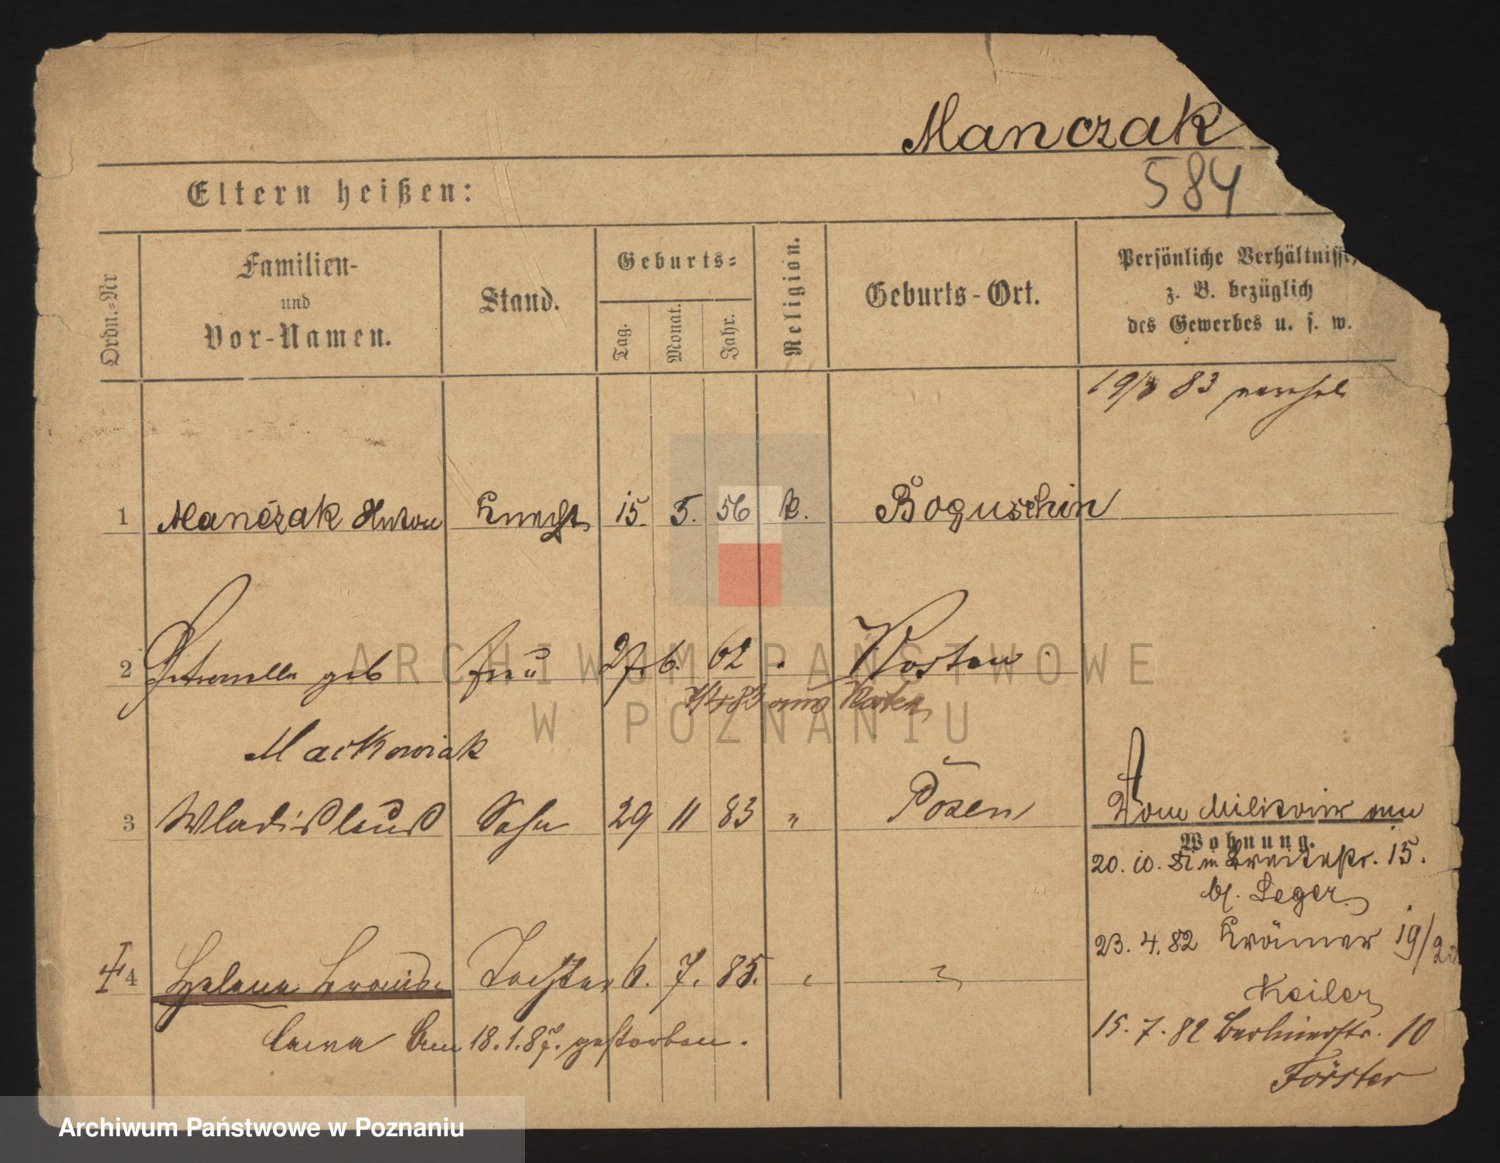 Manczak
584
Eltern heißen:
Ordn.-Nr
Familien- und Vor-Namen.
Stand.
Geburts=
Tag.
Monat.
Jahr.
Religion.
Geburts-Ort.
Persönliche Verhältnisse,
z. B. bezüglich
des Gewerbes u. s. w.
19/3 83 verehel
1 Manczak Anton Knecht 15. 5. 56 k. Boguschin
2 Petronella geb Frau 27. 6. 62 Kosten
83 aus Kosten
Mackowiak
3 Wladislaus Sohn 29 11 83 " Posen
Vom Militair
Wohnung.
20. 10. 81 Breitestr. 15.
b. Seger
23. 4. 82 Krämer 19/
Keiler
4 Helena Tochter 6. 7. 85.
am 18. 1. 87. gestorben.
15. 7. 82 Berlinerstr. 10
Förster
ARCHIWUM PAŃSTWOWE
W POZNANIU
Archiwum Państwowe w Poznaniu